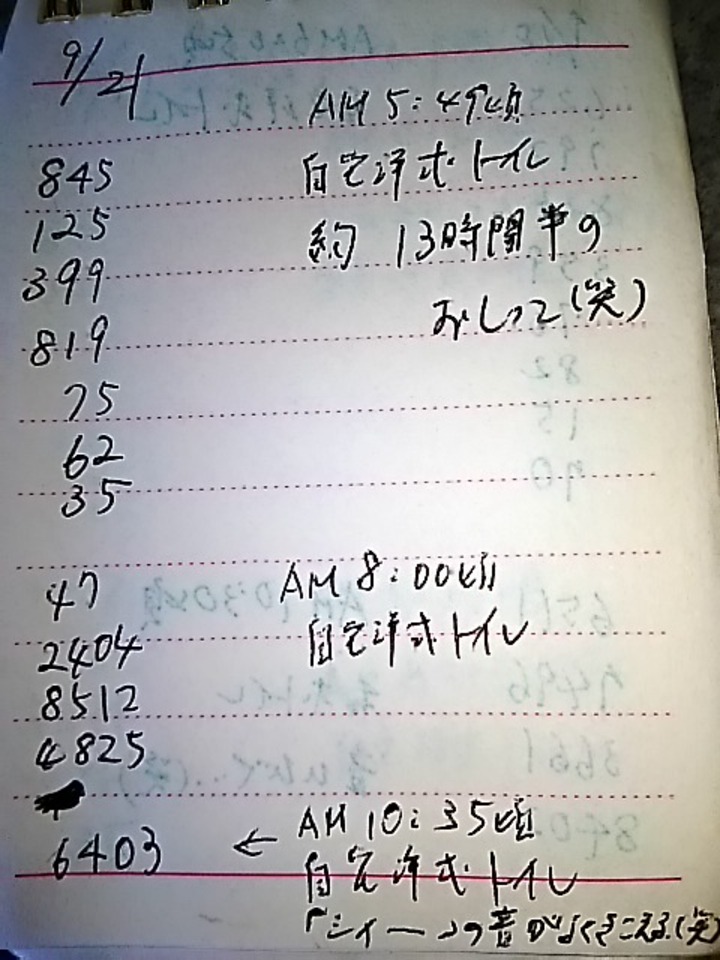 9/21
AM 5:49頃
845 自宅洋式トイレ
125 約 13時間半の
399
819 おしっこ(笑)
75
62
35
47 AM 8:00頃
2404 自宅洋式トイレ
8512
4825
6403 ← AM 10:35頃
自宅洋式トイレ
「シイーッの音がよくきこえる(笑)